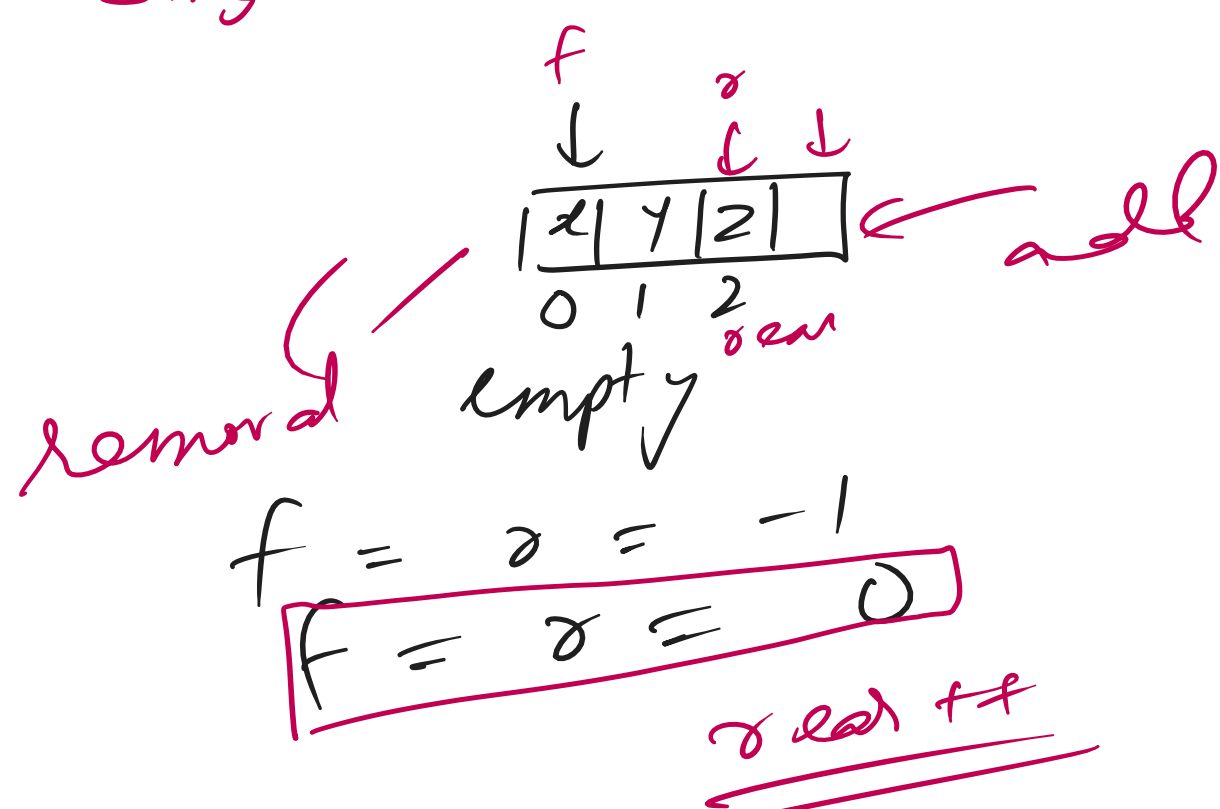 f
r
x | y | z |
add
0 1 2
rear
removal
empty
f = r = -1
f = r = 0
rear ++